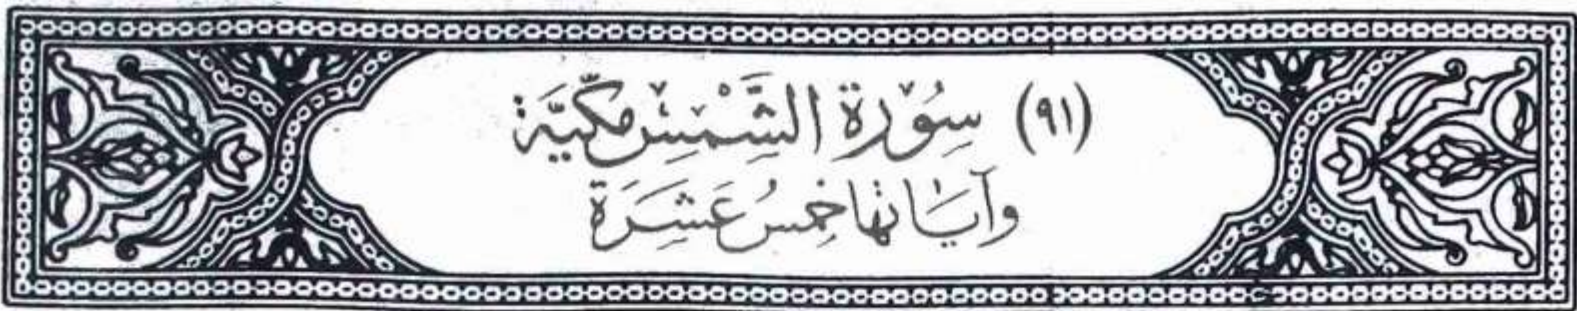 (٩١) سُورَةُ الشَّمْسِ مَكِّيَّة
وَآيَاتُهَا خَمْسُ عَشَرَة